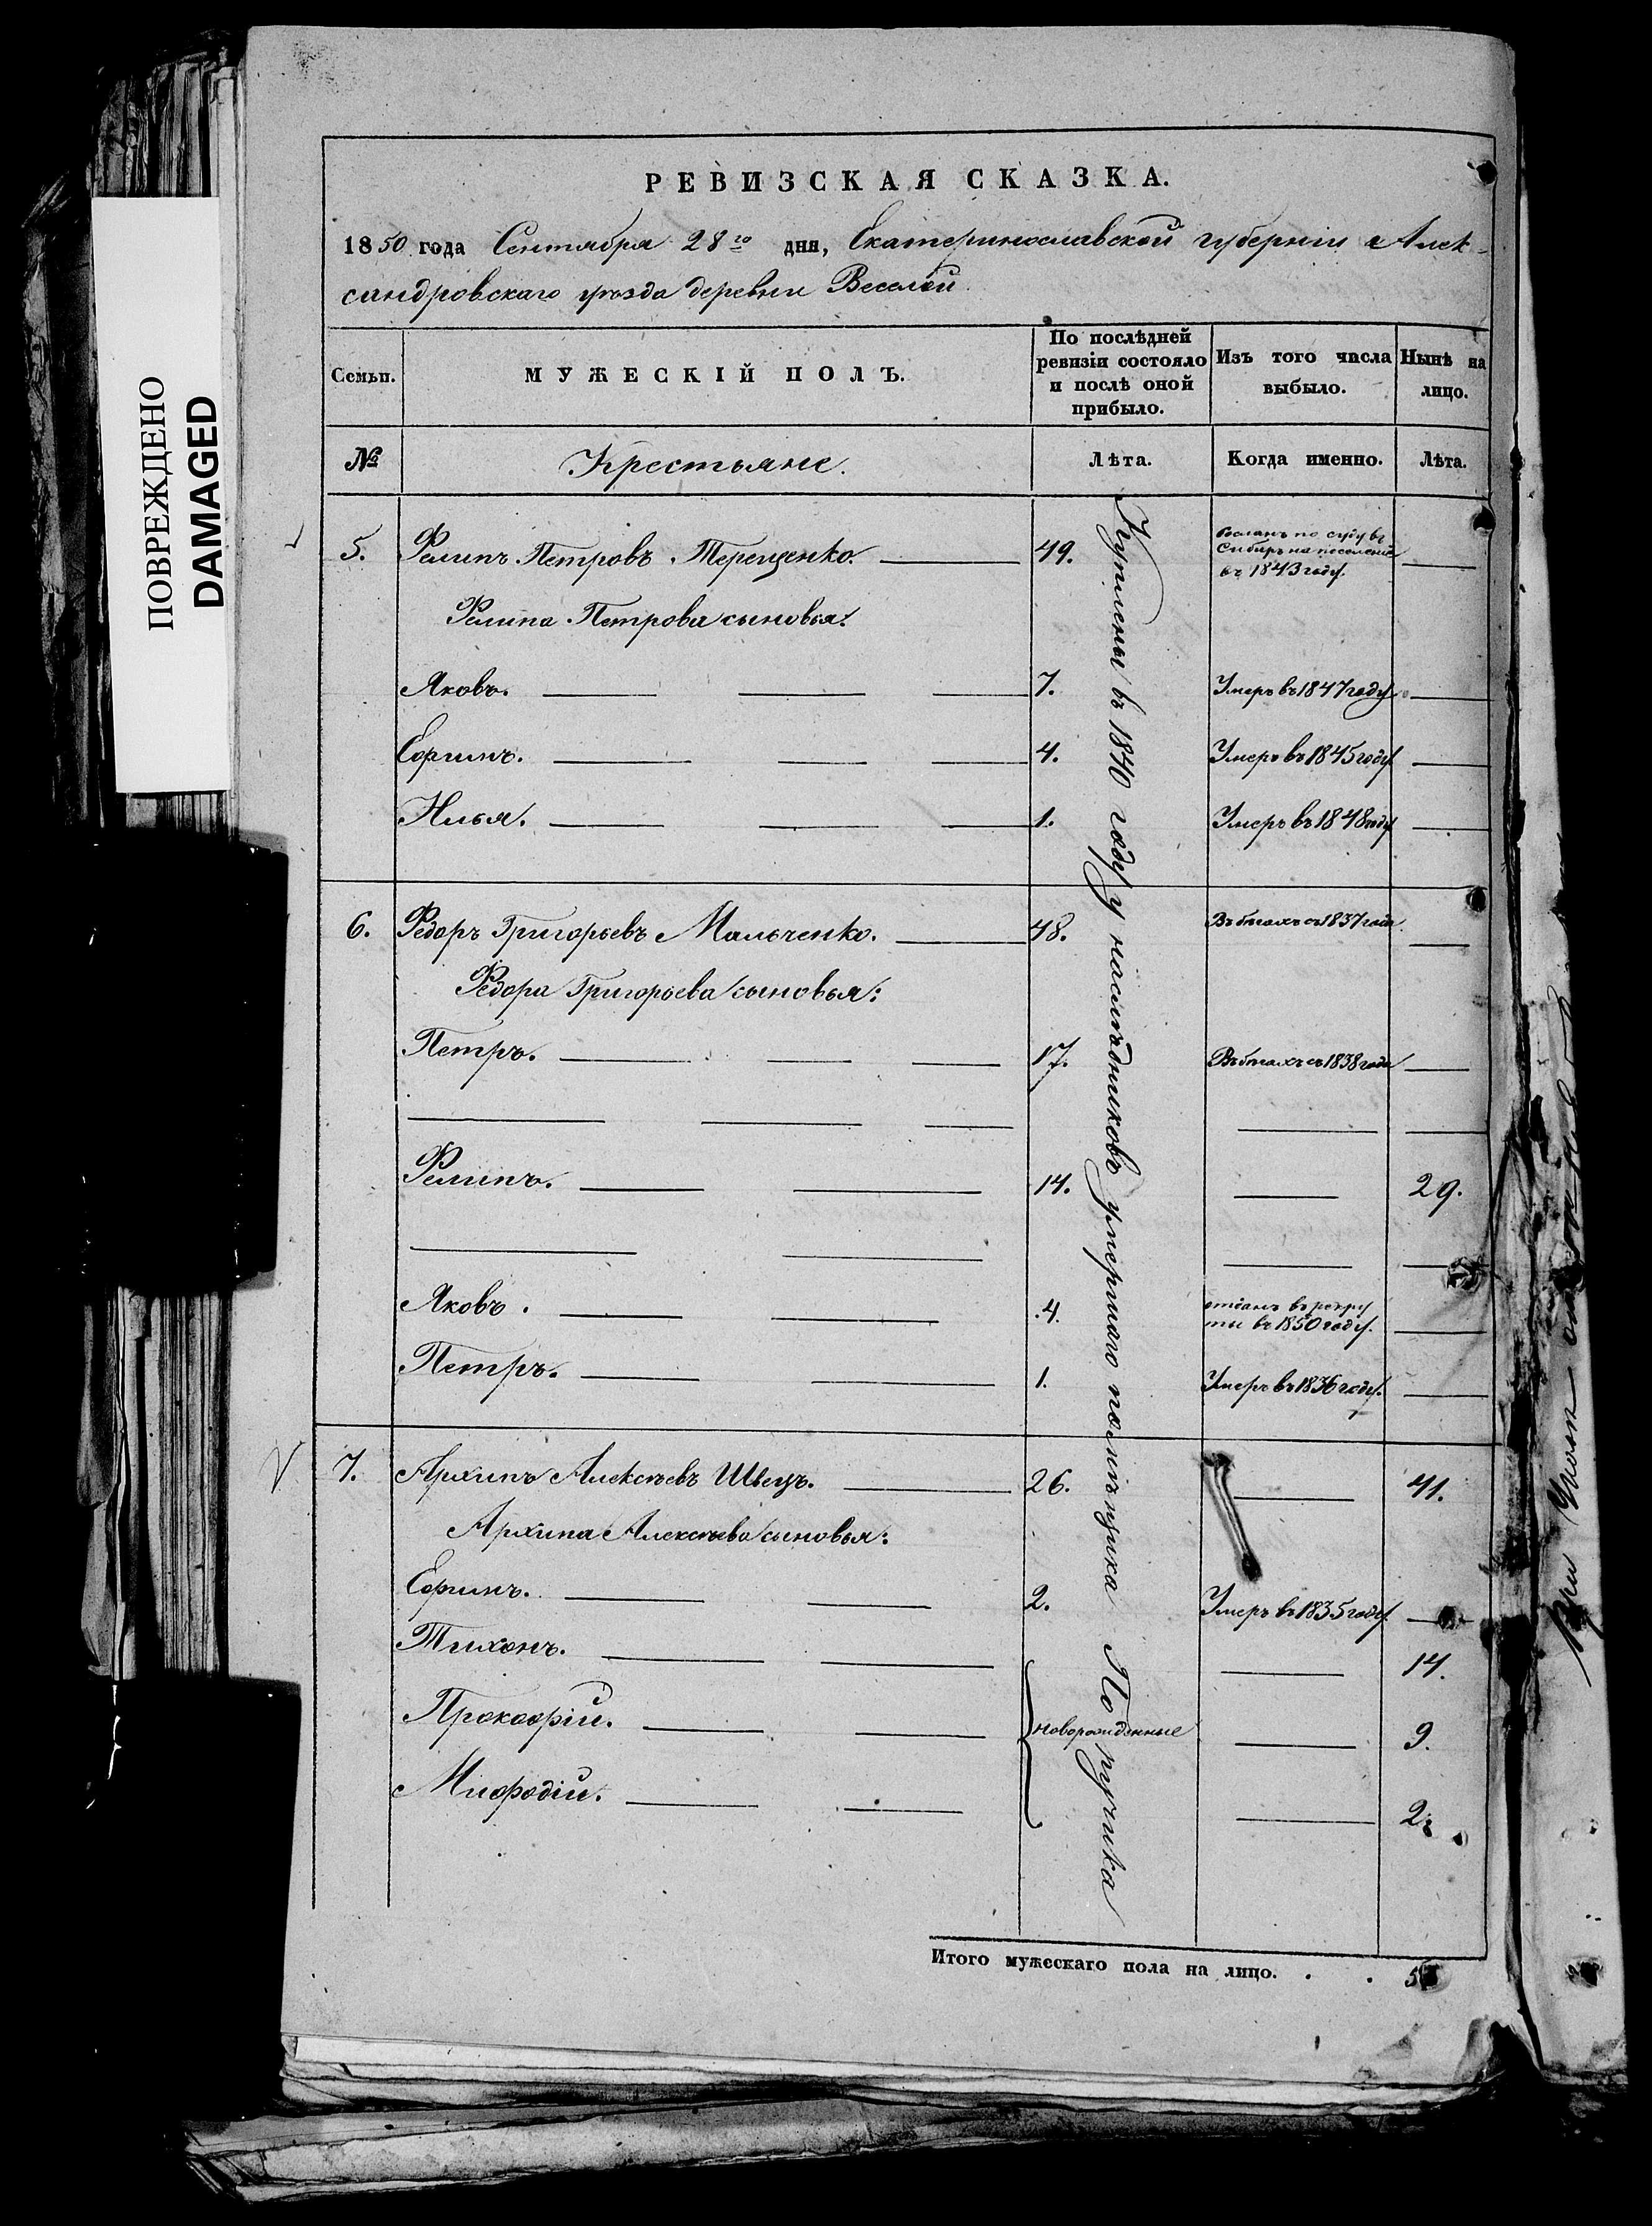 ПОВРЕЖДЕНО
DAMAGED
РЕВИЗСКАЯ СКАЗКА.
1850 года Сентября 28го дня, Екатеринославской губерніи Алек-
сандровскаго уѣзда деревни Веселой
Семьи.
МУЖЕСКІЙ ПОЛЪ.
По послѣдней
ревизіи состояло
и послѣ оной
прибыло.
Изъ того числа
выбыло.
Нынѣ на
лицо.
№
Крестьяне.
Лѣта.
Когда именно.
Лѣта.
5. Филипъ Петровъ Терещенко. 49. сосланъ по суду въ
Сибирь на поселеніе
въ 1843 году.
Филипа Петрова сыновья:
Яковъ. 7. Умеръ въ 1847 году
Ефимъ. 4. Умеръ въ 1845 году
Илья. 1. Умеръ въ 1848 году
6. Федоръ Григорьевъ Мальченко. 48. Въ бѣгахъ съ 1837 года
Федора Григорьева сыновья:
Петръ. 17. Въ бѣгахъ съ 1838 года
Филипъ. 14. 29.
Яковъ. 4. отданъ въ рекру
ты въ 1850 году.
Петръ. 1. Умеръ въ 1836 году.
7. Архипъ Алексѣевъ Швецъ. 26. 41.
Архипа Алексѣева сыновья:
Ефимъ. 2. Умеръ въ 1835 году
Тихонъ. 14.
Прокофій. новорожденные 9.
Мифодій. 2.
Куплены въ 1840 году у наслѣдниковъ умершаго помѣщика Поручика
Итого мужескаго пола на лицо. . . 5